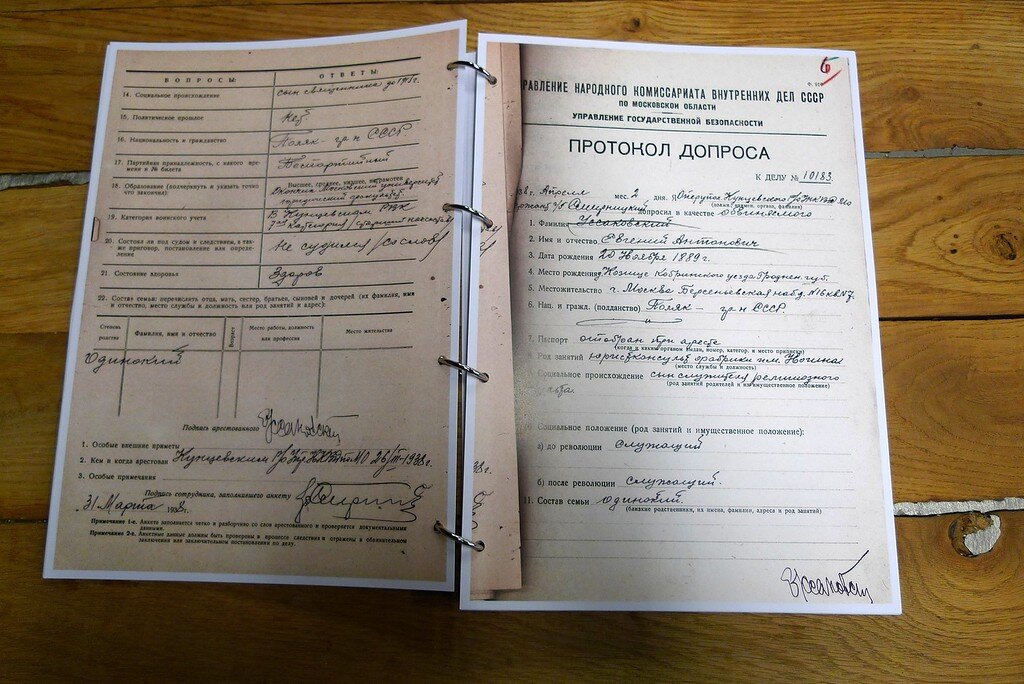 ВОПРОСЫ: ОТВЕТЫ:
14. Социальное происхождение сын священника до 1918 г.
15. Политическое прошлое Нет
16. Национальность и гражданство Поляк - гр-н СССР
17. Партийная принадлежность, с какого времени и № билета Беспартийный
18. Образование (подчеркнуть и указать точно что закончил) Высшее, среднее, низшее, неграмотен
Окончил Московский университет
юридический факультет
19. Категория воинского учета В Кунцевском РВК
20. Состоял ли под судом и следствием, а также приговор, постановление или определение Не судился /со слов/
21. Состояние здоровья Здоров
22. Состав семьи: перечислить отца, мать, сестер, братьев, сыновей и дочерей (их фамилия, имя
и отчество, место службы и должность или род занятий и адрес)
Степень родства Фамилия, имя и отчество Возраст Место работы, должность или профессия Место жительства
Одинокий
Подпись арестованного
1. Особые внешние приметы
2. Кем и когда арестован Кунцевским Р/О УНКВД МО 26/III-1938 г.
3. Особые примечания
Подпись сотрудника, заполнившего анкету
31 Марта 1938 г.
Примечание 1-е. Анкета заполняется четко и разборчиво со слов арестованного и проверяется документальными
данными.
Примечание 2-е. Анкетные данные должны быть проверены в процессе следствия и отражены в обвинительном
заключении или заключительном постановлении по делу.
6
РАВЛЕНИЕ НАРОДНОГО КОМИССАРИАТА ВНУТРЕННИХ ДЕЛ СССР
ПО МОСКОВСКОЙ ОБЛАСТИ
УПРАВЛЕНИЕ ГОСУДАРСТВЕННОЙ БЕЗОПАСНОСТИ
ПРОТОКОЛ ДОПРОСА
К ДЕЛУ № 10183.
Апреля мес. 2 дня. Я, Оперупол. Кунцевского Р/О УНКВД МО
(должн., наимен. органа, фамилия)
допросил в качестве Обвиняемого
1. Фамилия Уссаковский
2. Имя и отчество Евгений Антонович
3. Дата рождения 20 Ноября 1889 г.
4. Место рождения Кобринского уезда Гроднен. губ.
5. Местожительство г. Москва Берсеньевская наб. д. №16 кв. №7.
6. Нац. и гражд. (подданство) Поляк - гр-н СССР
7. Паспорт отобран при аресте
(когда и каким органом выдан, номер, категор. и место прописки)
Род занятий юрисконсульт фабрики им. Ногина
(место службы и должность)
Социальное происхождение сын служителя религиозного
(род занятий родителей и их имущественное положение)
культа.
Социальное положение (род занятий и имущественное положение):
а) до революции Служащий
б) после революции служащий.
11. Состав семьи одинокий.
(близкие родственники, их имена, фамилии, адреса и род занятий)